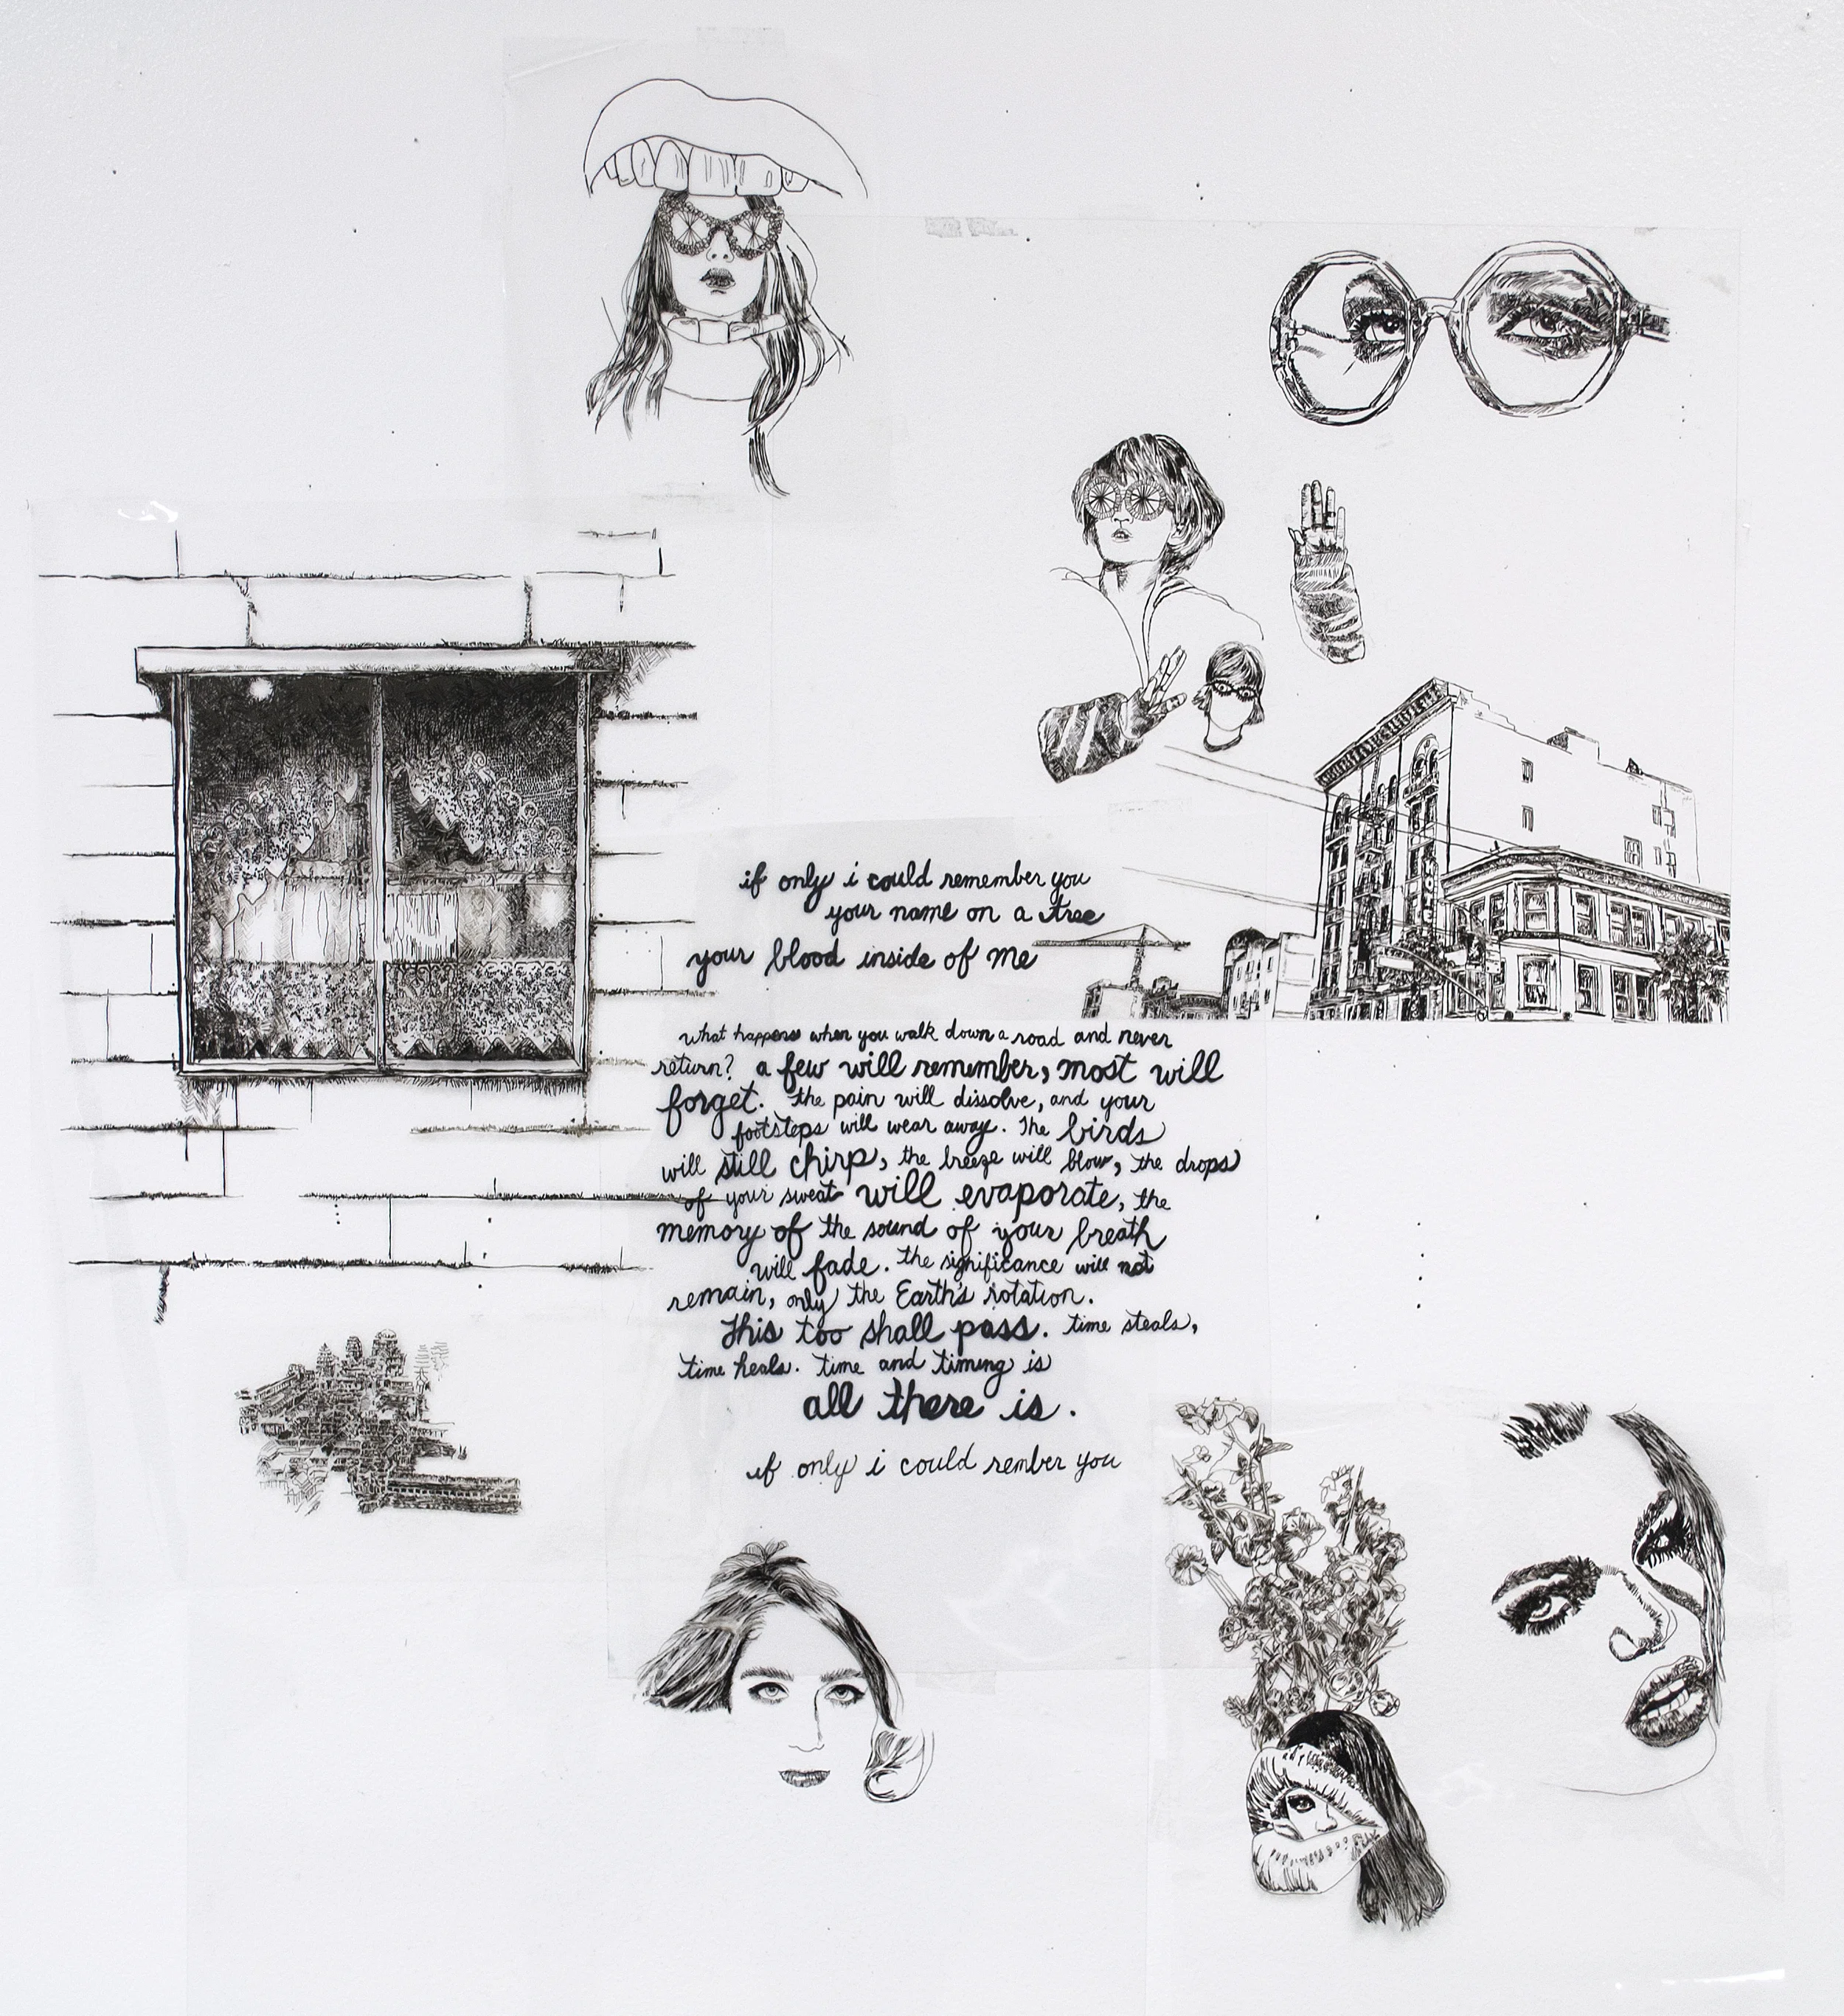 if only i could remember you
your name on a tree
your blood inside of me
what happens when you walk down a road and never
return? a few will remember, most will
forget. the pain will dissolve, and your
footsteps will wear away. The birds
will still chirp, the breeze will blow, the drops
of your sweat will evaporate, the
memory of the sound of your breath
will fade. the significance will not
remain, only the Earth's rotation.
This too shall pass. time steals,
time heals. time and timing is
all there is.
if only i could rember you